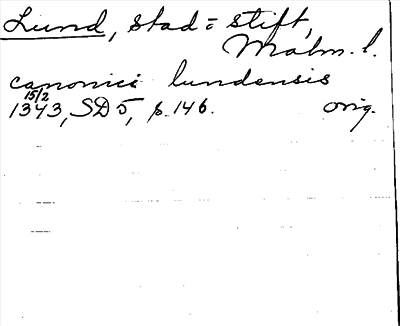 Lund, stad = stift,
Malm. l.
canonici lundensis
15/2
1343, SD 5, p. 146. orig.